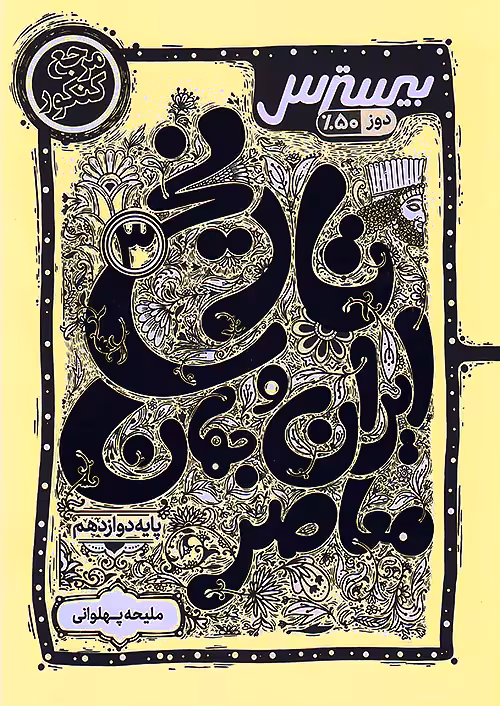 مرجع
کنکور
بیسترس
دوز ۵۰٪
تاریخ ۳
ایران و جهان
معاصر
پایه دوازدهم
ملیحه پهلوانی